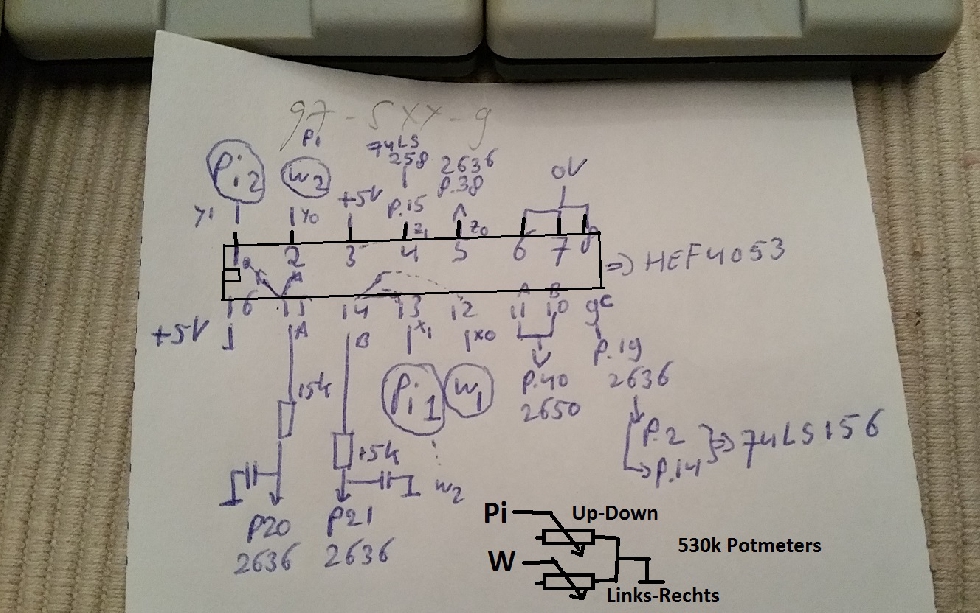 97-5XX-9
P1
74LS
258
2636
P.38
0V
Pi2
W2
+5V
P.15
Y1
Y0
Z1
Z0
1
2
3
4
5
6
7
8
=> HEF4053
A
B
16
15
14
13
12
11
10
9C
+5V
A
B
X1
X0
P.19
2636
Pi1
W1
P.40
2650
15k
P.2
P.14
=> 74LS156
+5k
W2
P20
2636
P21
2636
Pi
Up-Down
W
530k Potmeters
Links-Rechts